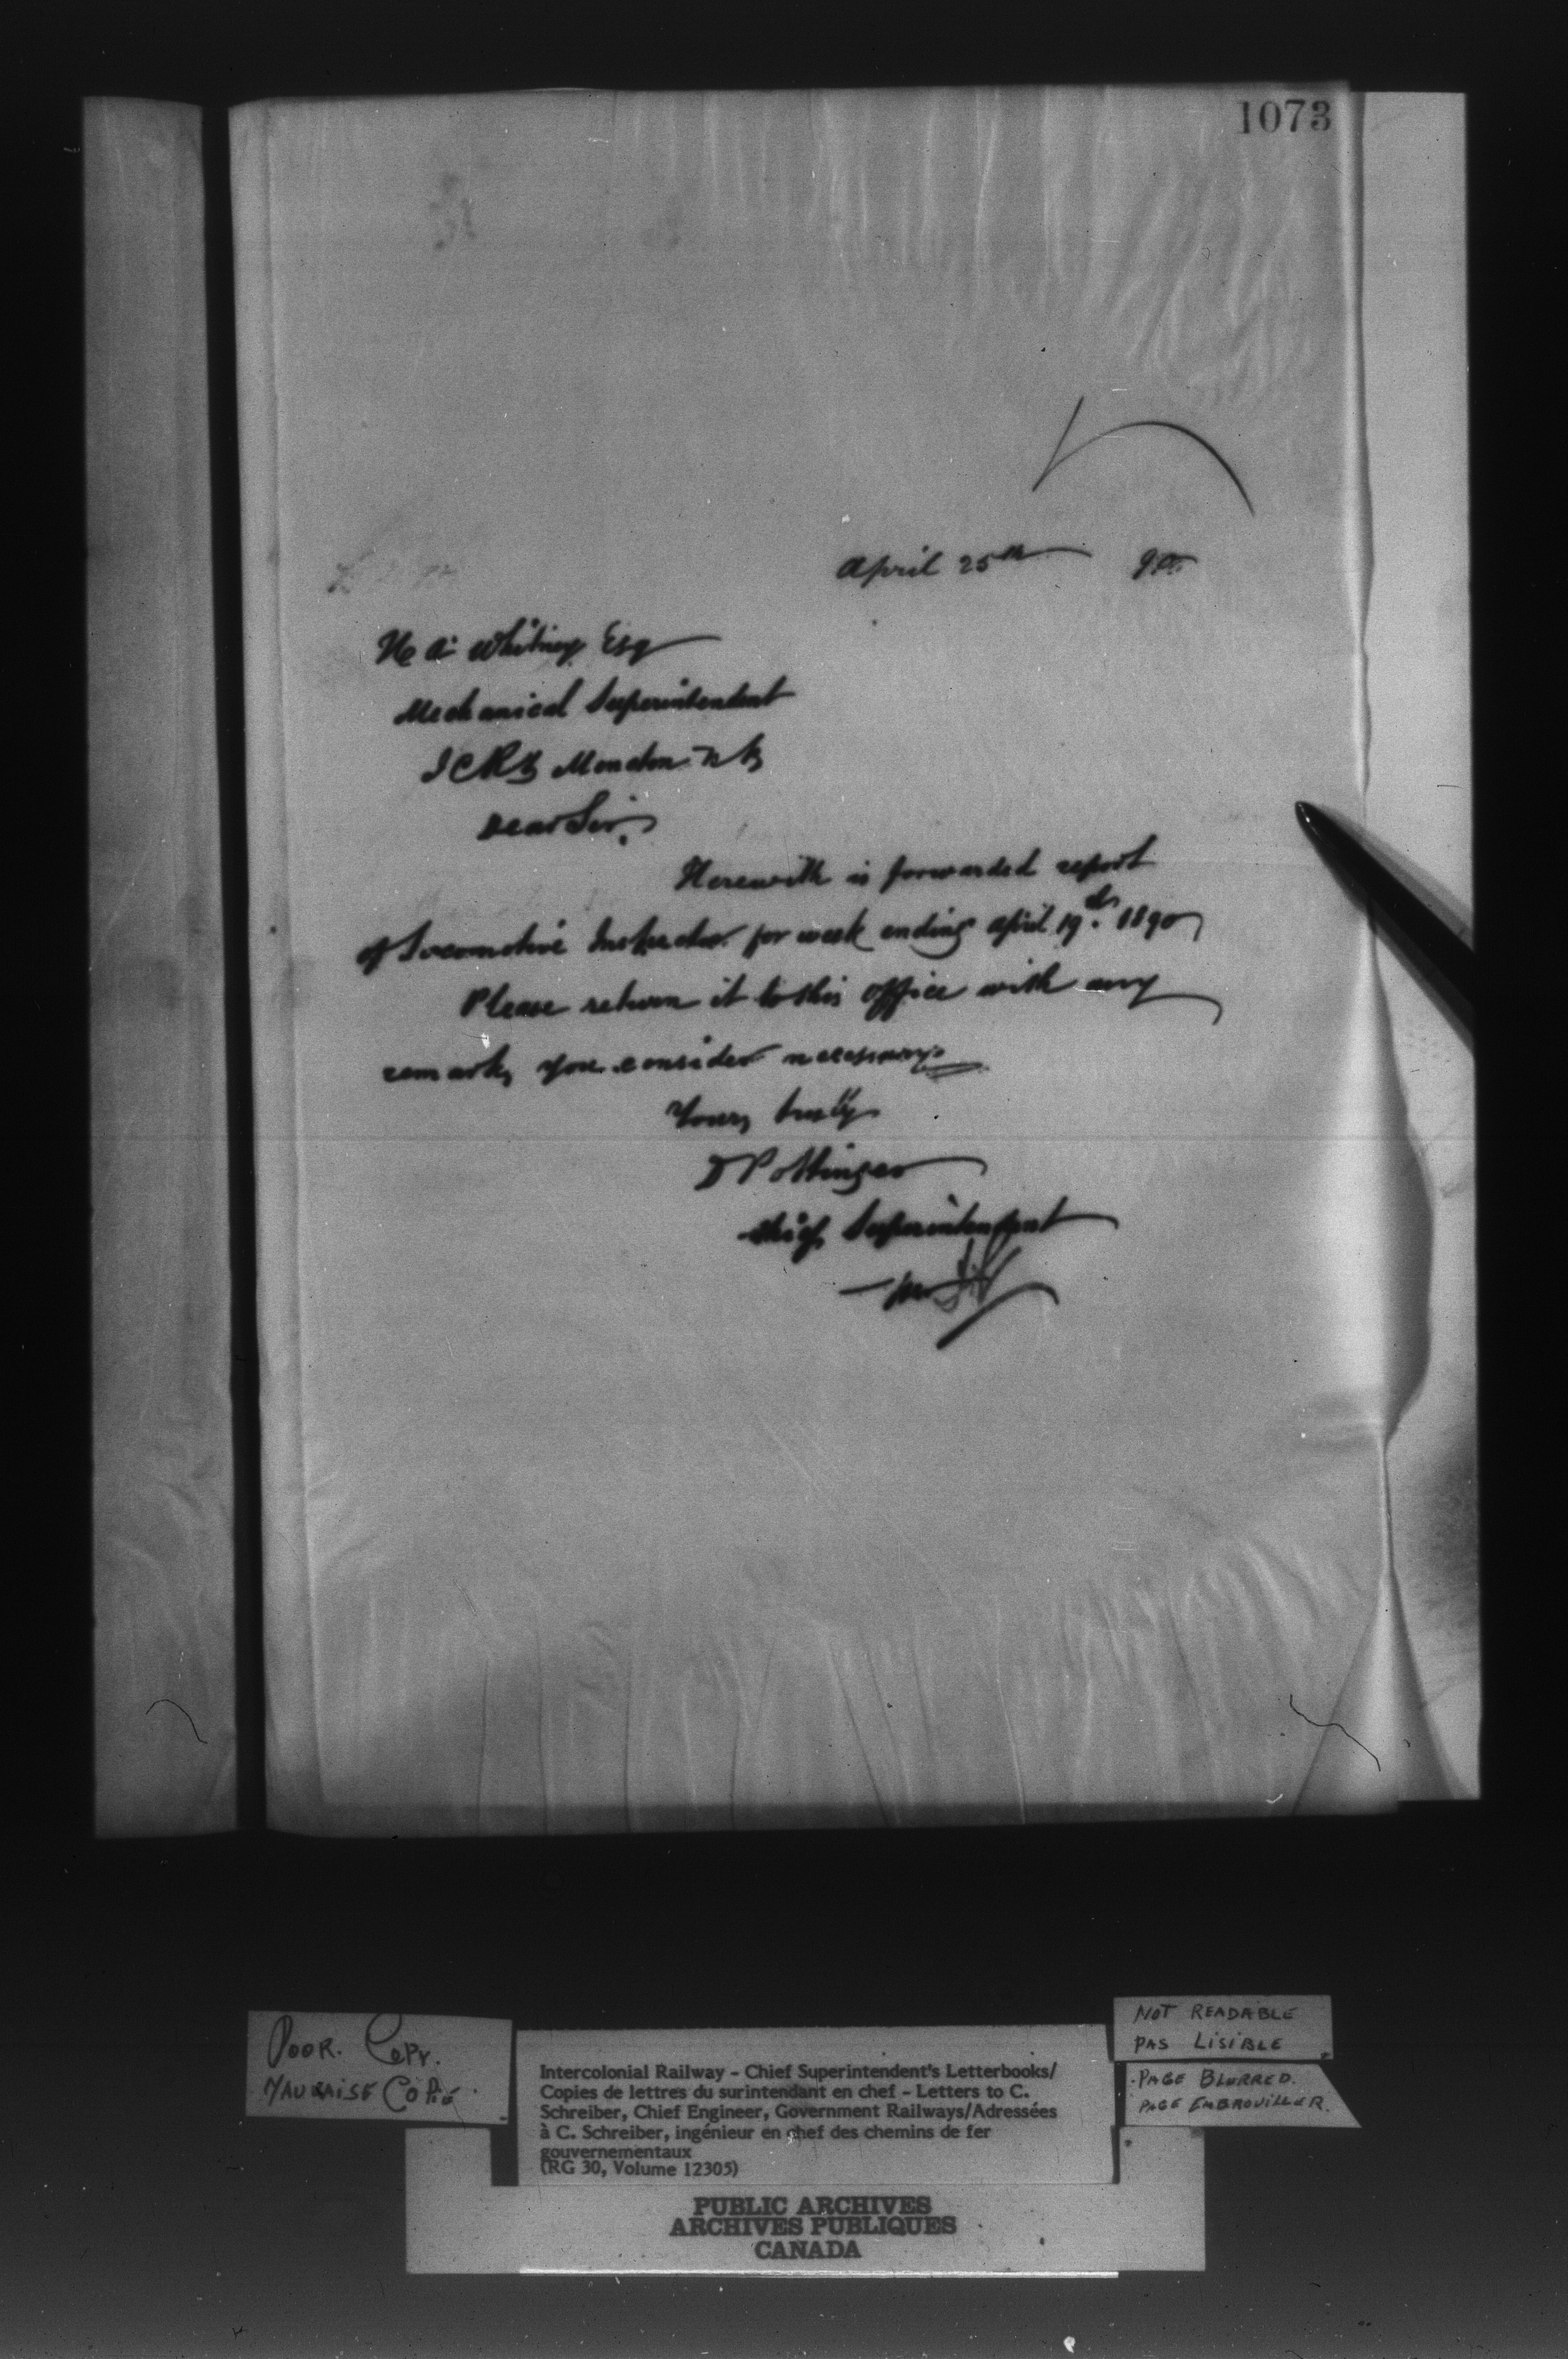 1073
April 25th 90
H A Whitney Esq
Mechanical Superintendent
I C Ry Moncton N B
Dear Sir,
Herewith is forwarded report
of Locomotive Inspector for week ending April 19th 1890
Please return it to this office with any
remarks you consider necessary
Yours truly
D Pottinger
Chief Superintendent
POOR. COPY.
MAUVAISE COPIE.
Intercolonial Railway - Chief Superintendent's Letterbooks/
Copies de lettres du surintendant en chef - Letters to C.
Schreiber, Chief Engineer, Government Railways/Adressées
à C. Schreiber, ingénieur en chef des chemins de fer
gouvernementaux
(RG 30, Volume 12305)
NOT READABLE
PAS LISIBLE
PAGE BLURRED.
PAGE EMBROUILLER.
PUBLIC ARCHIVES
ARCHIVES PUBLIQUES
CANADA